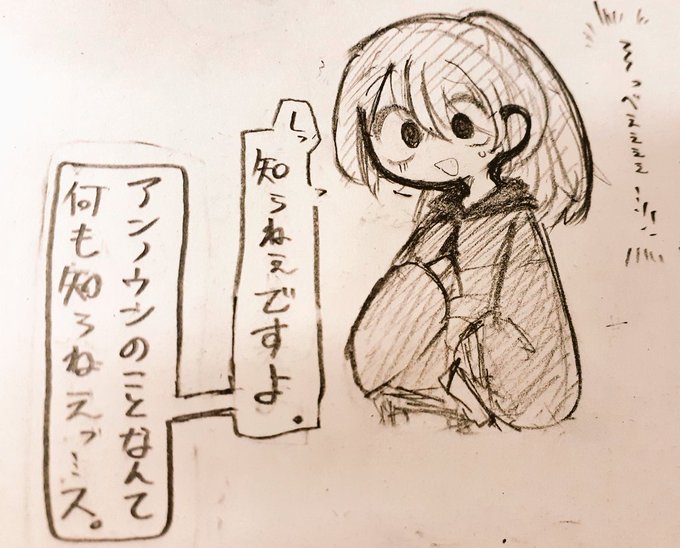 〜〜っべぇぇぇぇ……
しっ…っ
知らねえですよ。
アンノウンのことなんて
何も知らねえッ…ス。